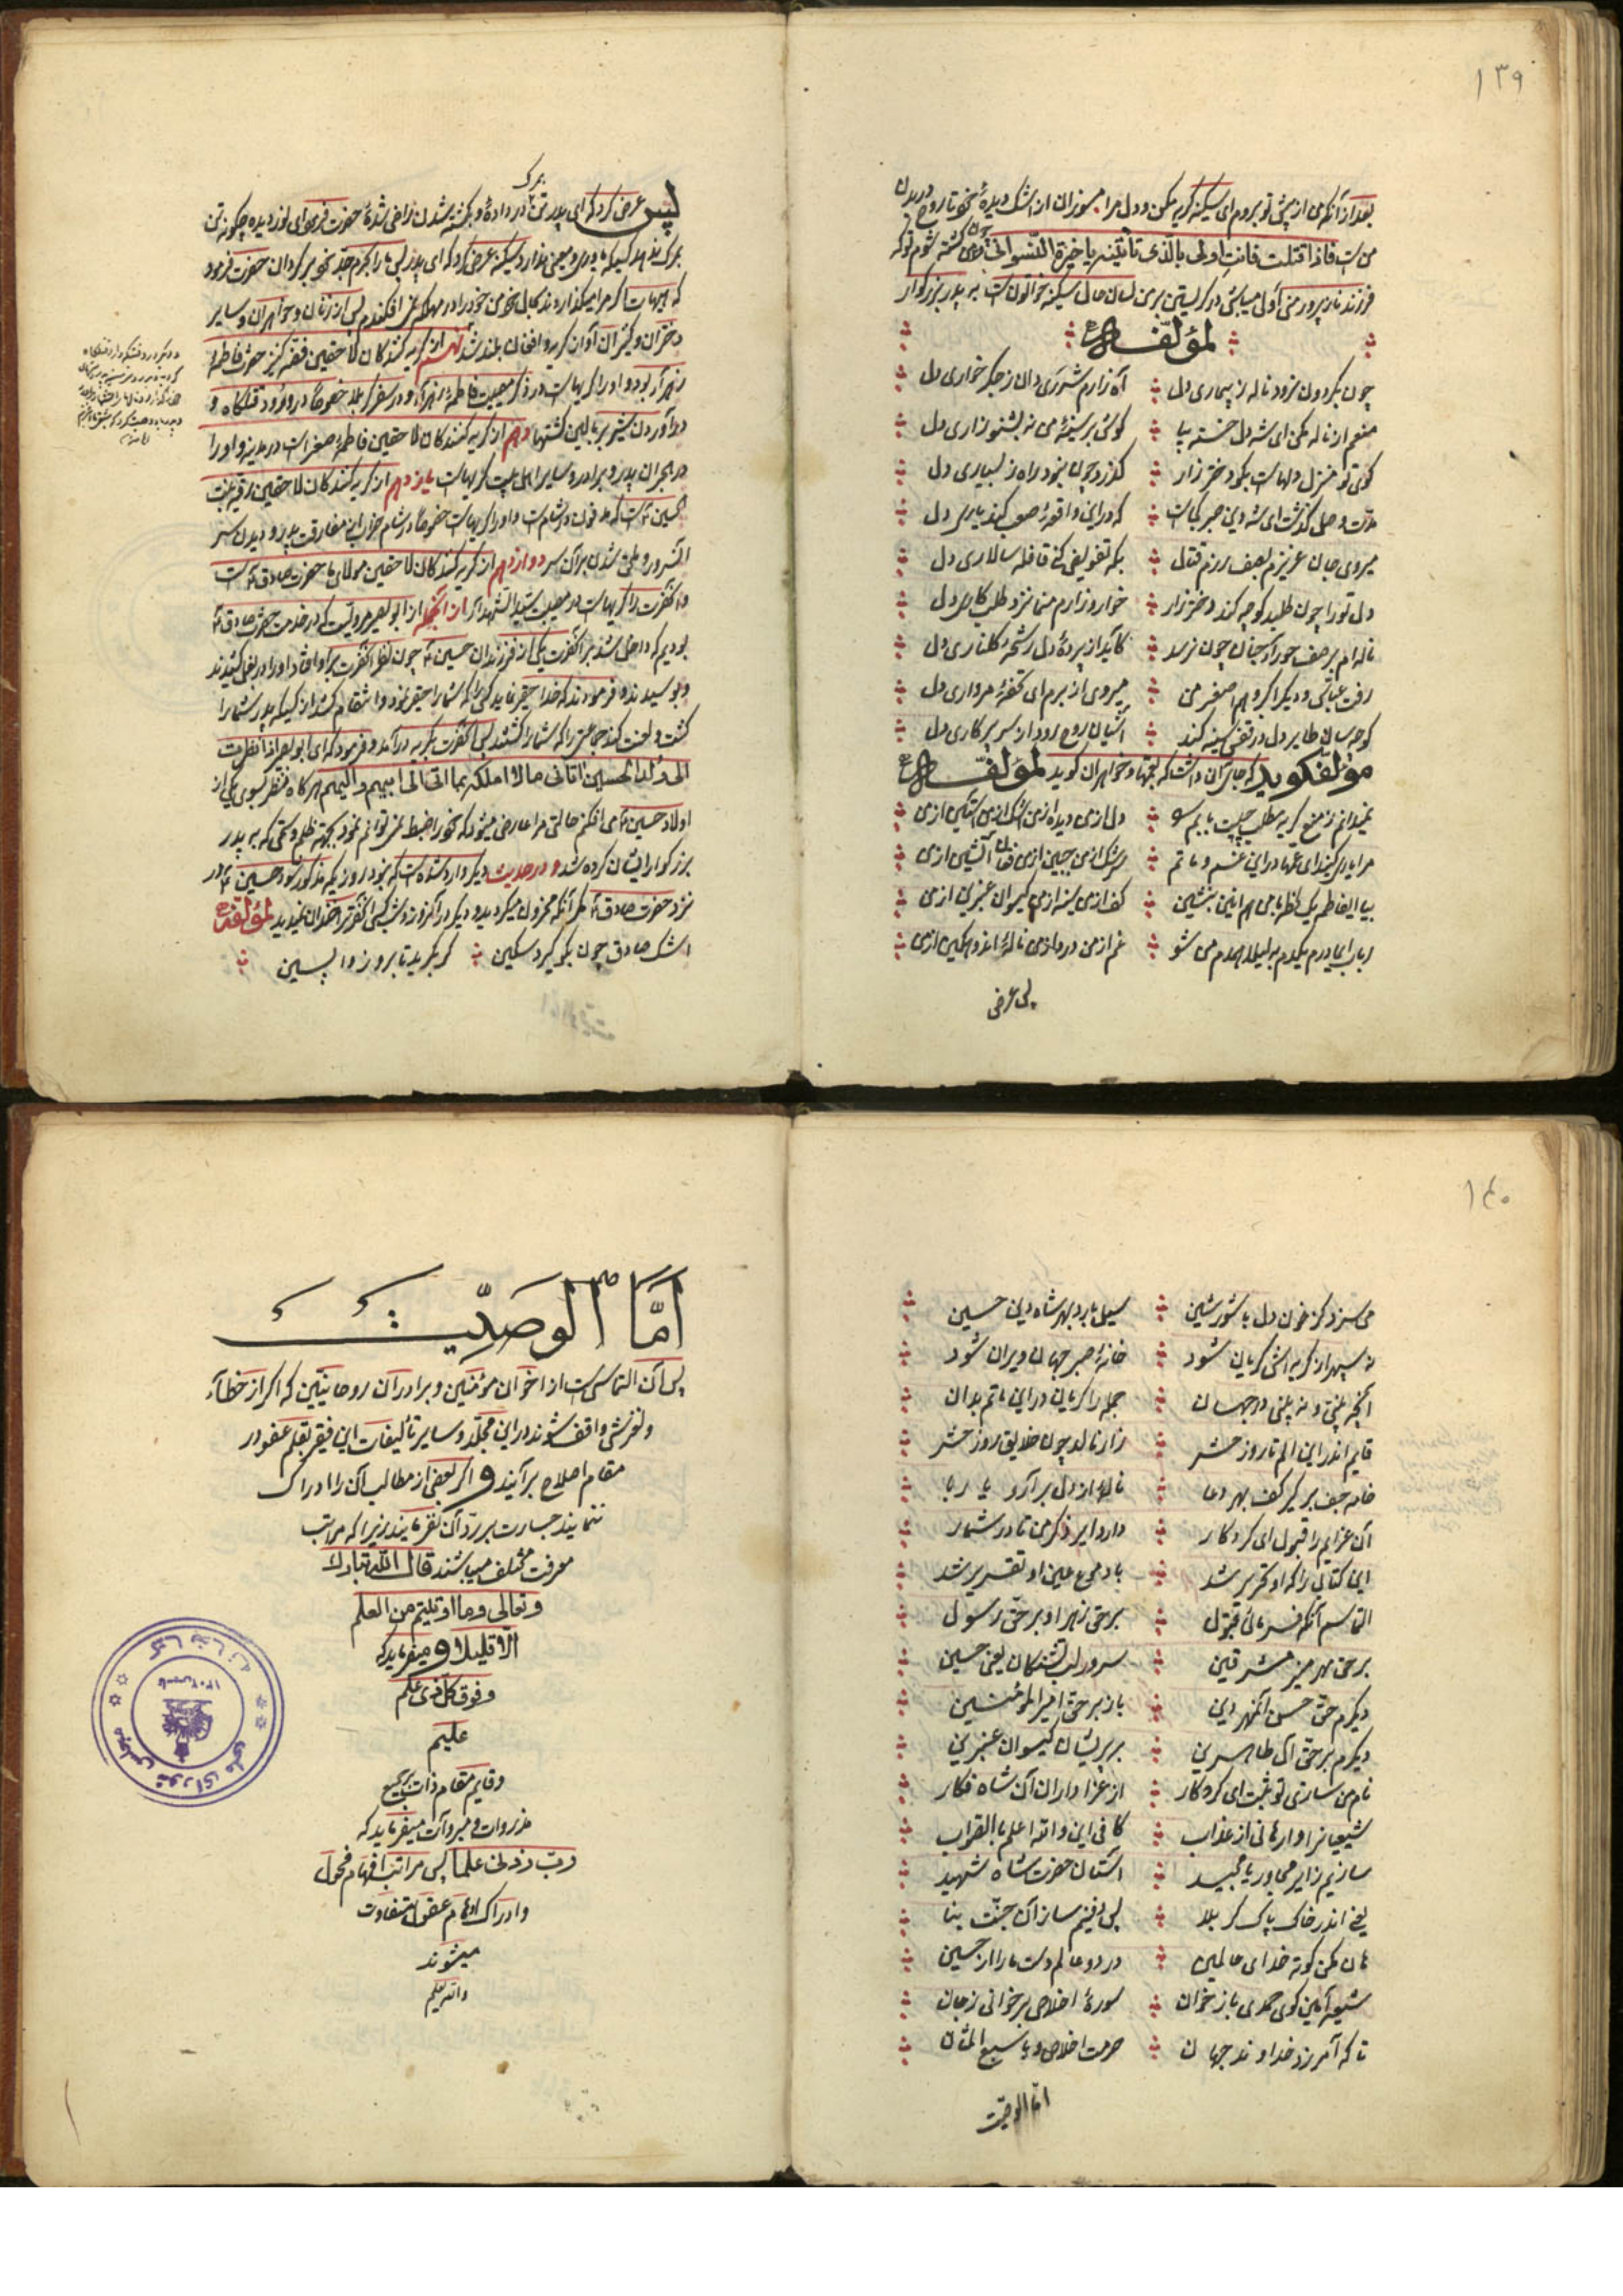 ۱۳۹
بعد از آنکه من از پیش تو بروم ای سکینه گریه مکن و دل مرا مسوزان از اشک دیدهٔ خود تا روح در بدن
من است فاذا قتلت فانت اولی بالذی تأتینه یا خیرة النسوان چون من کشته شوم تو که
فرزند نازپرور منی اولی میباشی در گریستن بر من لسان حال سکینه خواتون است به پدر بزرگوار
لمؤلفه
چون بگردون نرود ناله ز بیماری دل آه زارم شرری دان ز جگر خواری دل
منعم از ناله مکن ای شه دل خسته بیا گوش بر سینهٔ من نه بشنو زاری دل
کوی تو منزل دلهاست بگو دختر زار گذرد چون بنود راه ز بسیاری دل
مدت وصل گذشت ای شه دین صبر کجاست که در این واقعهٔ صعب کند یاری دل
میروی جان عزیزم بصف رزم قتال بکه تفویض کنی قافله سالاری دل
دل تو را چون طلبد کوچه کند دختر زار خوار و زارم منما نزد طلب کاری دل
ناله ام بر صف حور آرجنان چون نرسد کاید از پردهٔ دل رشحهٔ گلناری دل
رفت عباس و دیگر اکبر و هم اصغر من میروی از برم ای تحفهٔ مرواری دل
کوچه سان طایر دل در قفس سینه کند آشیان روح رود از سر پرکاری دل
مؤلف گوید که جای آن داشت که بعمها و خواهران گوید لمؤلفه
نمیدانم ز منع گریه مطلب چیست بابم را دل از من دیده از من اشک از من آستین از من
مرا یاری کنید ای عمها در این غم و ماتم سرشک از من جبین از من فغان آتشین از من
بیا ای فاطمه یک لحظه با من هم انین بنشین کف از من سینه از من گیسوان عنبرین از من
رباب ای مادرم یکدم به لیلا همدم من شو غم از من درد از من نالهٔ اندوهگین از من
پس عرض
پس عرض کرد که ای پدر تن بمرگ در داده و بکشته شدن راضی شدهٔ حضرت فرمود ای نور دیده چگونه تن
بمرگ ندهد کسیکه یاور و معینی ندارد سکینه عرض کرد که ای پدر پس ما را بحرم جد خود برگردان حضرت فرمود
که هیهات اگر مرا میگذاردند بحال خود من خود را در مهلکه نمی افکندم پس از زنان و خواهران و سایر
دختران و کنیزان آواز گریه و افغان بلند شد نهم از گریه کنندگان لاحقین فضه کنیز حضرت فاطمهٔ
زهرا بود و او را گریهاست در ذکر مصیبت فاطمهٔ زهرا و در سفر کربلا خصوصاً در ورود قتلگاه و
در آوردن شیر بر بالین کشتها دهم از گریه کنندگان لاحقین فاطمهٔ صغراست در مدینه و او را
در هجران پدر و برادر و سایر اهل بیت گریهاست یازدهم از گریه کنندگان لاحقین رقیه بنت
الحسین است که مدفون در شام است و او را گریهاست خصوصاً در شام خراب این مفارقت پدر و دیدن سر
آنسرور و ملحق شدن بر آن سر دوازدهم از گریه کنندگان لاحقین مولای ما حضرت صادق است
و آنحضرت را گریهاست در مصیبت سید الشهداء از آنجمله از ابوبصیر مرویست که در خدمت حضرت صادق
بودیم که داخل شد بر آنحضرت یکی از فرزندان حسین چون نظر آنحضرت بر او افتاد او را در بغل کشیدند
و بوسیدند و فرمودند که خدا حقیر نماید کسی را که شما را حقیر نمود و انتقام کشد از کسیکه پدر شما را
کشت و لعنت کند جماعتی را که شما را کشتند پس آنحضرت بگریه درآمد و فرمود که ای ابوبصیر اذا نظرت
الی ولد الحسین اتانی ما لا املکه بما اتی الی ابیهم والیهم هر گاه نظر بسوی یکی از
اولاد حسین می افکنم حالتی مرا عارض میشود که خود را ضبط نمی توانم نمود بجهة ظلم و ستمی که به پدر
بزرگوار ایشان کرده شد و در حدیث دیگر وارد شده است که نبود روزیکه مذکور شود حسین در
نزد حضرت صادق مگر آنکه محزون میگردید و دیگر در آنروز و شب کسی آنحضرت را خندان نمیدید لمؤلفه
اشک صادق چون بگو گیرد سکین گر بگرید تا بروز واپسین
۱۴۰
می سزد کز خون دل با شور و شین سیل بارد بهر شاه دین حسین
نه سپهر از گریه اش گریان شود خانهٔ صبر جهان ویران شود
آنچه بینی و نه بینی در جهان جمله را گریان در این ماتم بدان
قایم اندر این الم تا روز حشر زار نالد چون خلایق روز حشر
خامه جف برگیر کف بهر دعا نالهٔ از دل برآر و یا ربا
آن عزایم را قبول ای کردگار دارد ایر ذکر من تا در شمار
این کتابی را که او تحریر شد با دموع عین او تقریر شد
التماسم آنکه فرمائی قبول بر حق زهرا و بر حق رسول
بر حق مهر منیر مشرقین سرور لب تشنگان یعنی حسین
دیگرم حق حسن آنمهر دین باز بر حق امیر المؤمنین
دیگرم بر حق آل طاهرین بر پریشان گیسوان عنبرین
نام من سازی تو ثبت ای کردگار از عزاداران آن شاه فکار
شیعیانرا وارهانی از عذاب کافی این والله اعلم بالصواب
سازیم زایر مجاور یا مجید آستان حضرت شاه شهید
یعنی اندر خاک پاک کربلا پس دفینم ساز آن جنت بنا
هان مکن کوته خدای عالمین در دو عالم دست ما را از حسین
شیعه آمین گوی حمدی باز خوان سورهٔ اخلاص برخوانی ز جان
تا که آمرزد خداوند جهان حرمت اخلاص و با سبع المثان
اما الوصیت
اما الوصیت
پس آن التماسی است از اخوان مؤمنین و برادران روحانیین که اگر از خطاء
و لغزشی واقف شوند در این مجلد و سایر تألیفات این فقیر بقلم عفو در
مقام اصلاح برآیند و اگر بعضی از مطالب آن را ادراک
ننمایند جسارت بر رد آن نفرمایند زیرا که مراتب
معرفت مختلف میباشند قال الله تبارک
وتعالی وما اوتیتم من العلم
الا قلیلا و میفرماید که
وفوق کل ذی علم
علیم
و قایم مقام ذات
مذروات و مبروات میفرماید که
رب زدنی علما پس مراتب افهام فحول
و ادراک اوهام عقول متفاوت
میشوند
والله یعلم
کتابخانه مجلس شورای ملی